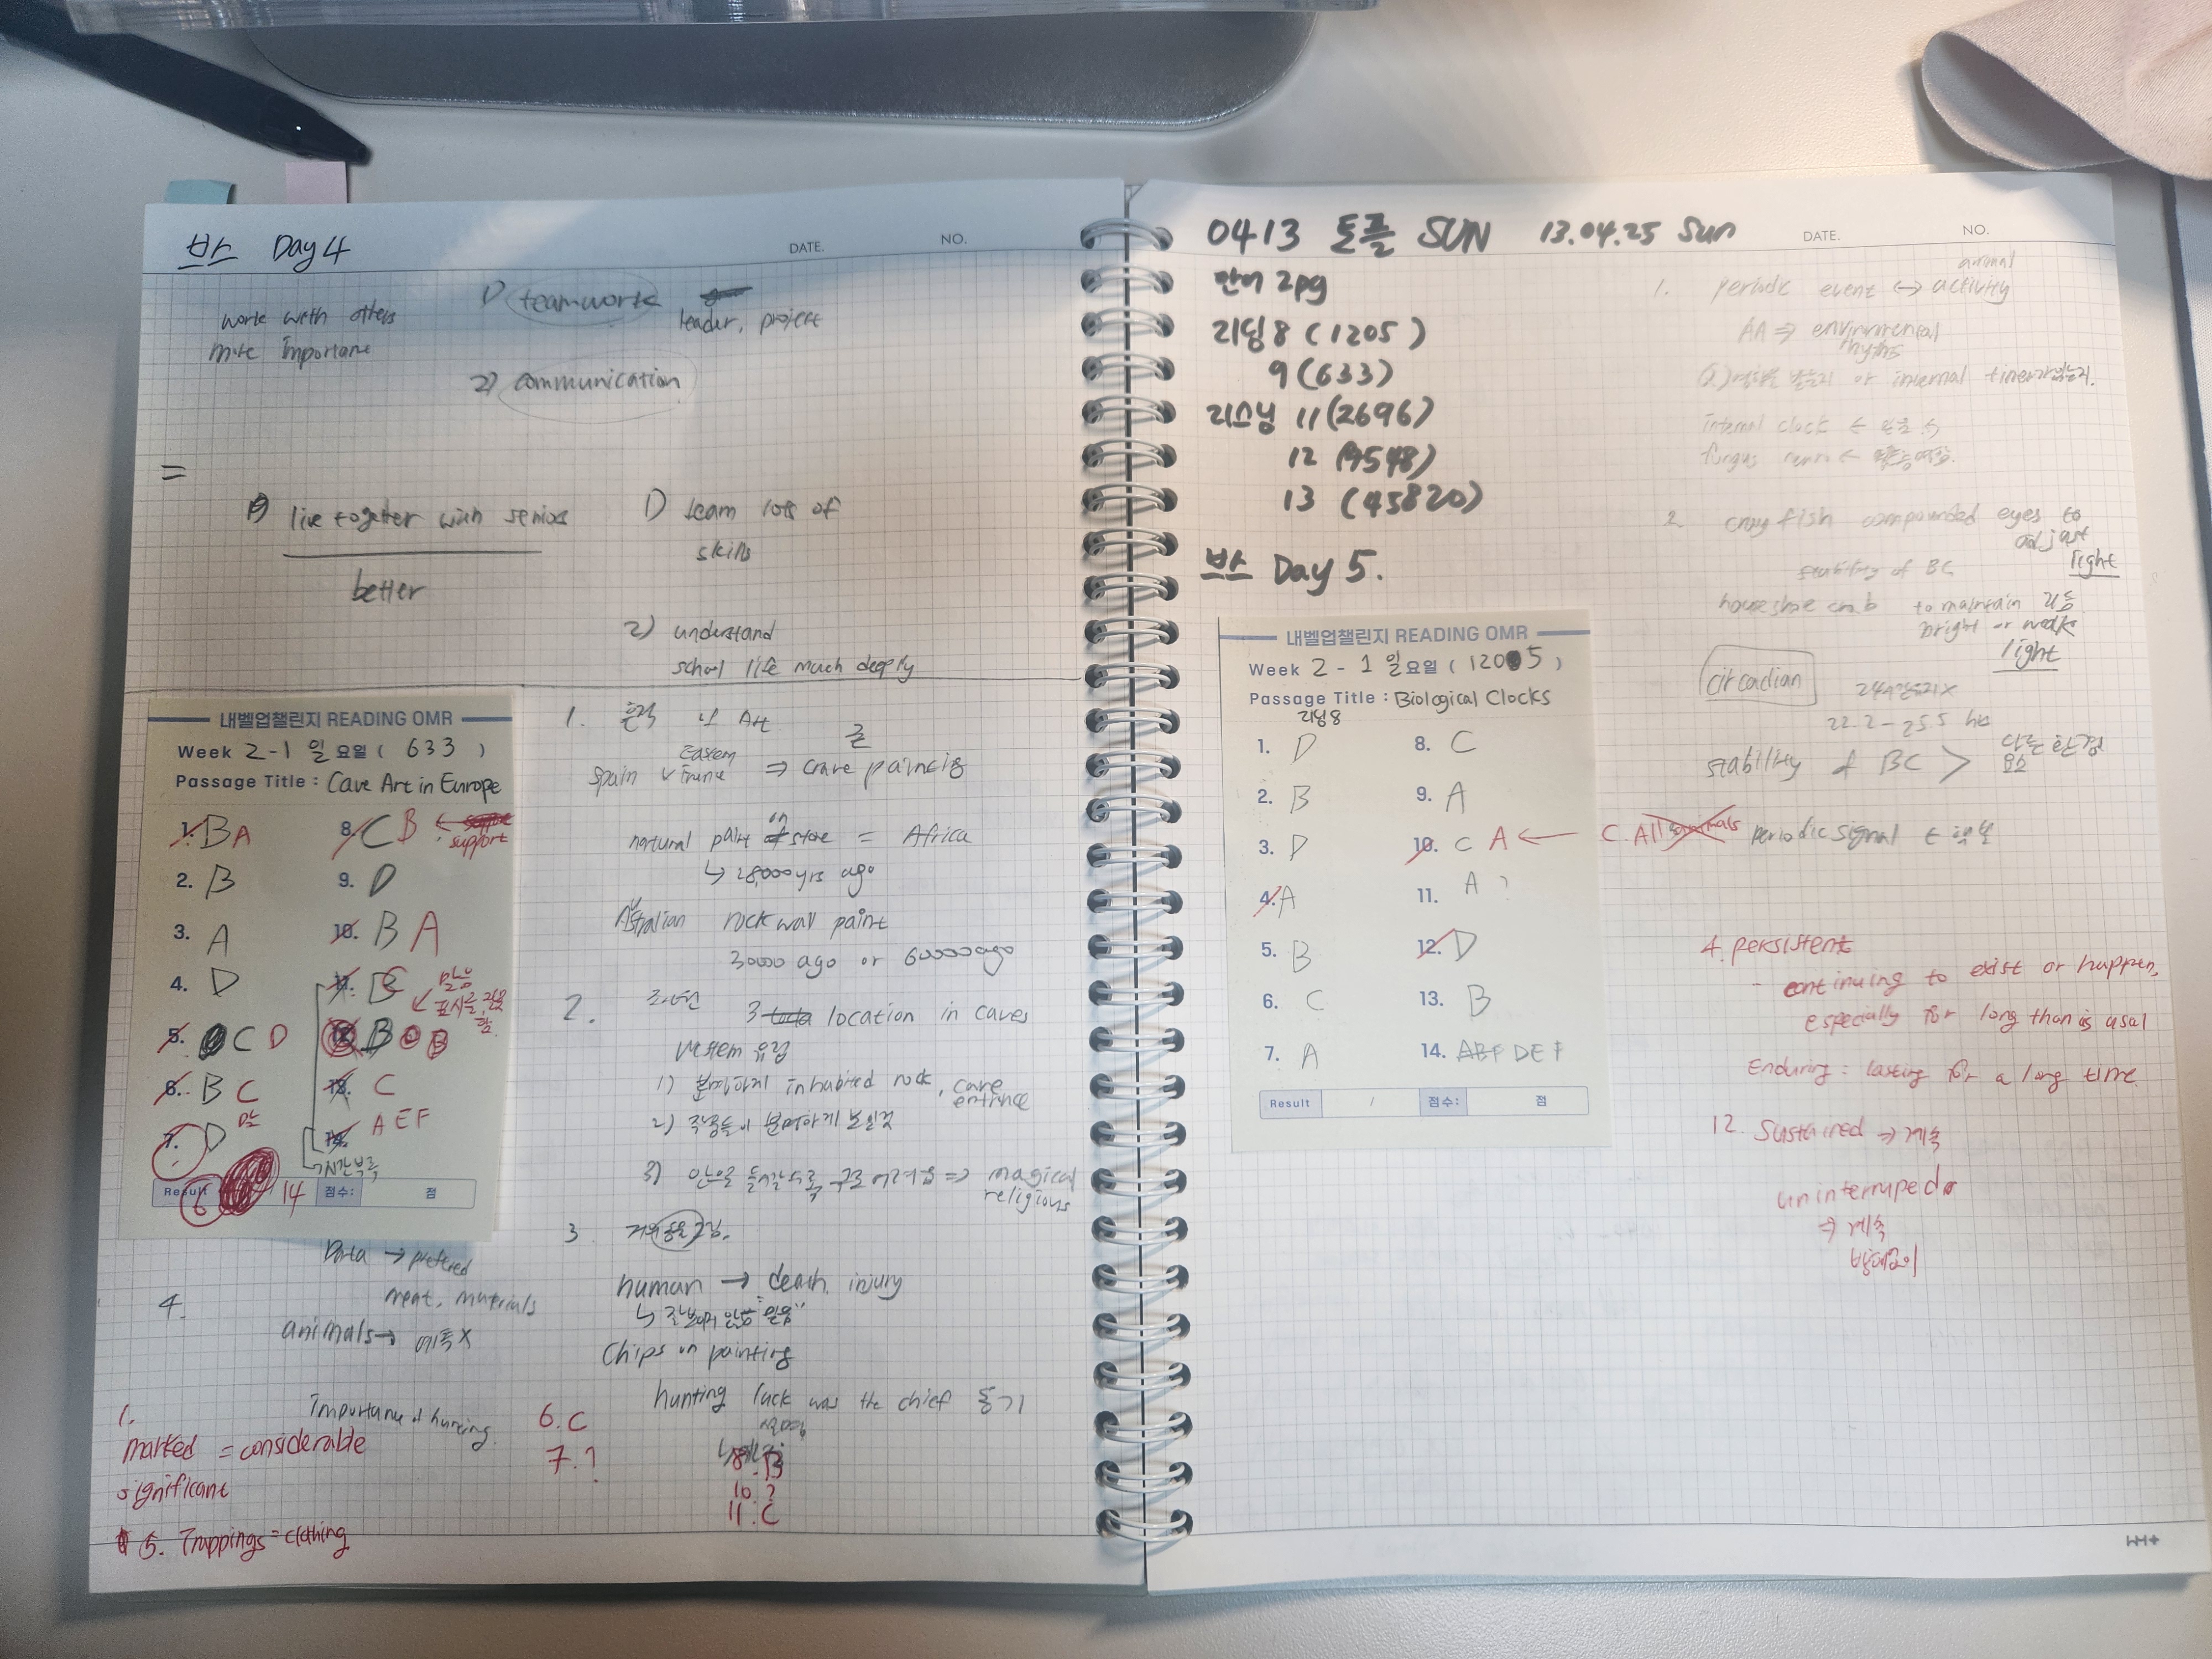 브스 Day 4
DATE.
NO.
work with others
more importane
1) teamwork
leader, project
2) communication
=
live together with seniors
better
1) learn lots of
skills
2) understand
school life much deeply
내벨업챌린지 READING OMR
Week 2-1 일요일 ( 633 )
Passage Title : Cave Art in Europe
1. B A
2. B
3. A
4. D
5. C D
6. B C
7. D
8. C B ← support
9. D
10. B A
11. B C
12. B
13. C
14. A E F
시간부족
Result 6 14 점수: 점
1.
Art
Eastern
Spain
⇒ Crave paincig
natural paint of stone = Africa
↳ 28,000 yrs ago
Australian rock wall paint
30000 ago or 60000 ago
2.
3 location in caves
Western 유럽
1) 분명하게 inhabited rock, cave
entrnce
2)
3) 안으로 들어갈수록 ⇒ magical
religious
3.
human → death, injury
Chips on painting
hunting luck was the chief 동기
Data → prefered
meat, materials
4.
animals → 예측 X
Importance of hunting
1.
marked = considerable
significant
5. Trappings = clothing
6. C
7. ?
8. B
10. ?
11. C
0413 토플 SUN 13.04.25 Sun
DATE.
NO.
단어 2pg
리딩 8 (1205)
9 (633)
리스닝 11 (2696)
12 (9548)
13 (45820)
브스 Day 5.
내벨업챌린지 READING OMR
Week 2 - 1 일요일 ( 1205 )
Passage Title : Biological Clocks
리딩 8
1. D
2. B
3. D
4. A
5. B
6. C
7. A
8. C
9. A
10. C A ←
11. A ?
12. D
13. B
14. ABF DEF
Result / 점수: 점
animal
1. periodic event ↔ activity
AA ⇒ environmental
rhyths
or internal timer가 있는지.
internal clock ←
fungus
2. cray fish compounded eyes to
adjust
light
stability of BC
houseshoe crab to maintain 리듬
bright or weak
light
circadian
22.2 - 25.5 hrs
stability of BC > 다른 환경
요소
C. All animals periodic signal ←
4. persistent
- continuing to exist or happen,
especially for long than is usal
Enduring : lasting for a long time.
12. Sustained → 계속
uninterruped
⇒ 계속
방해없이